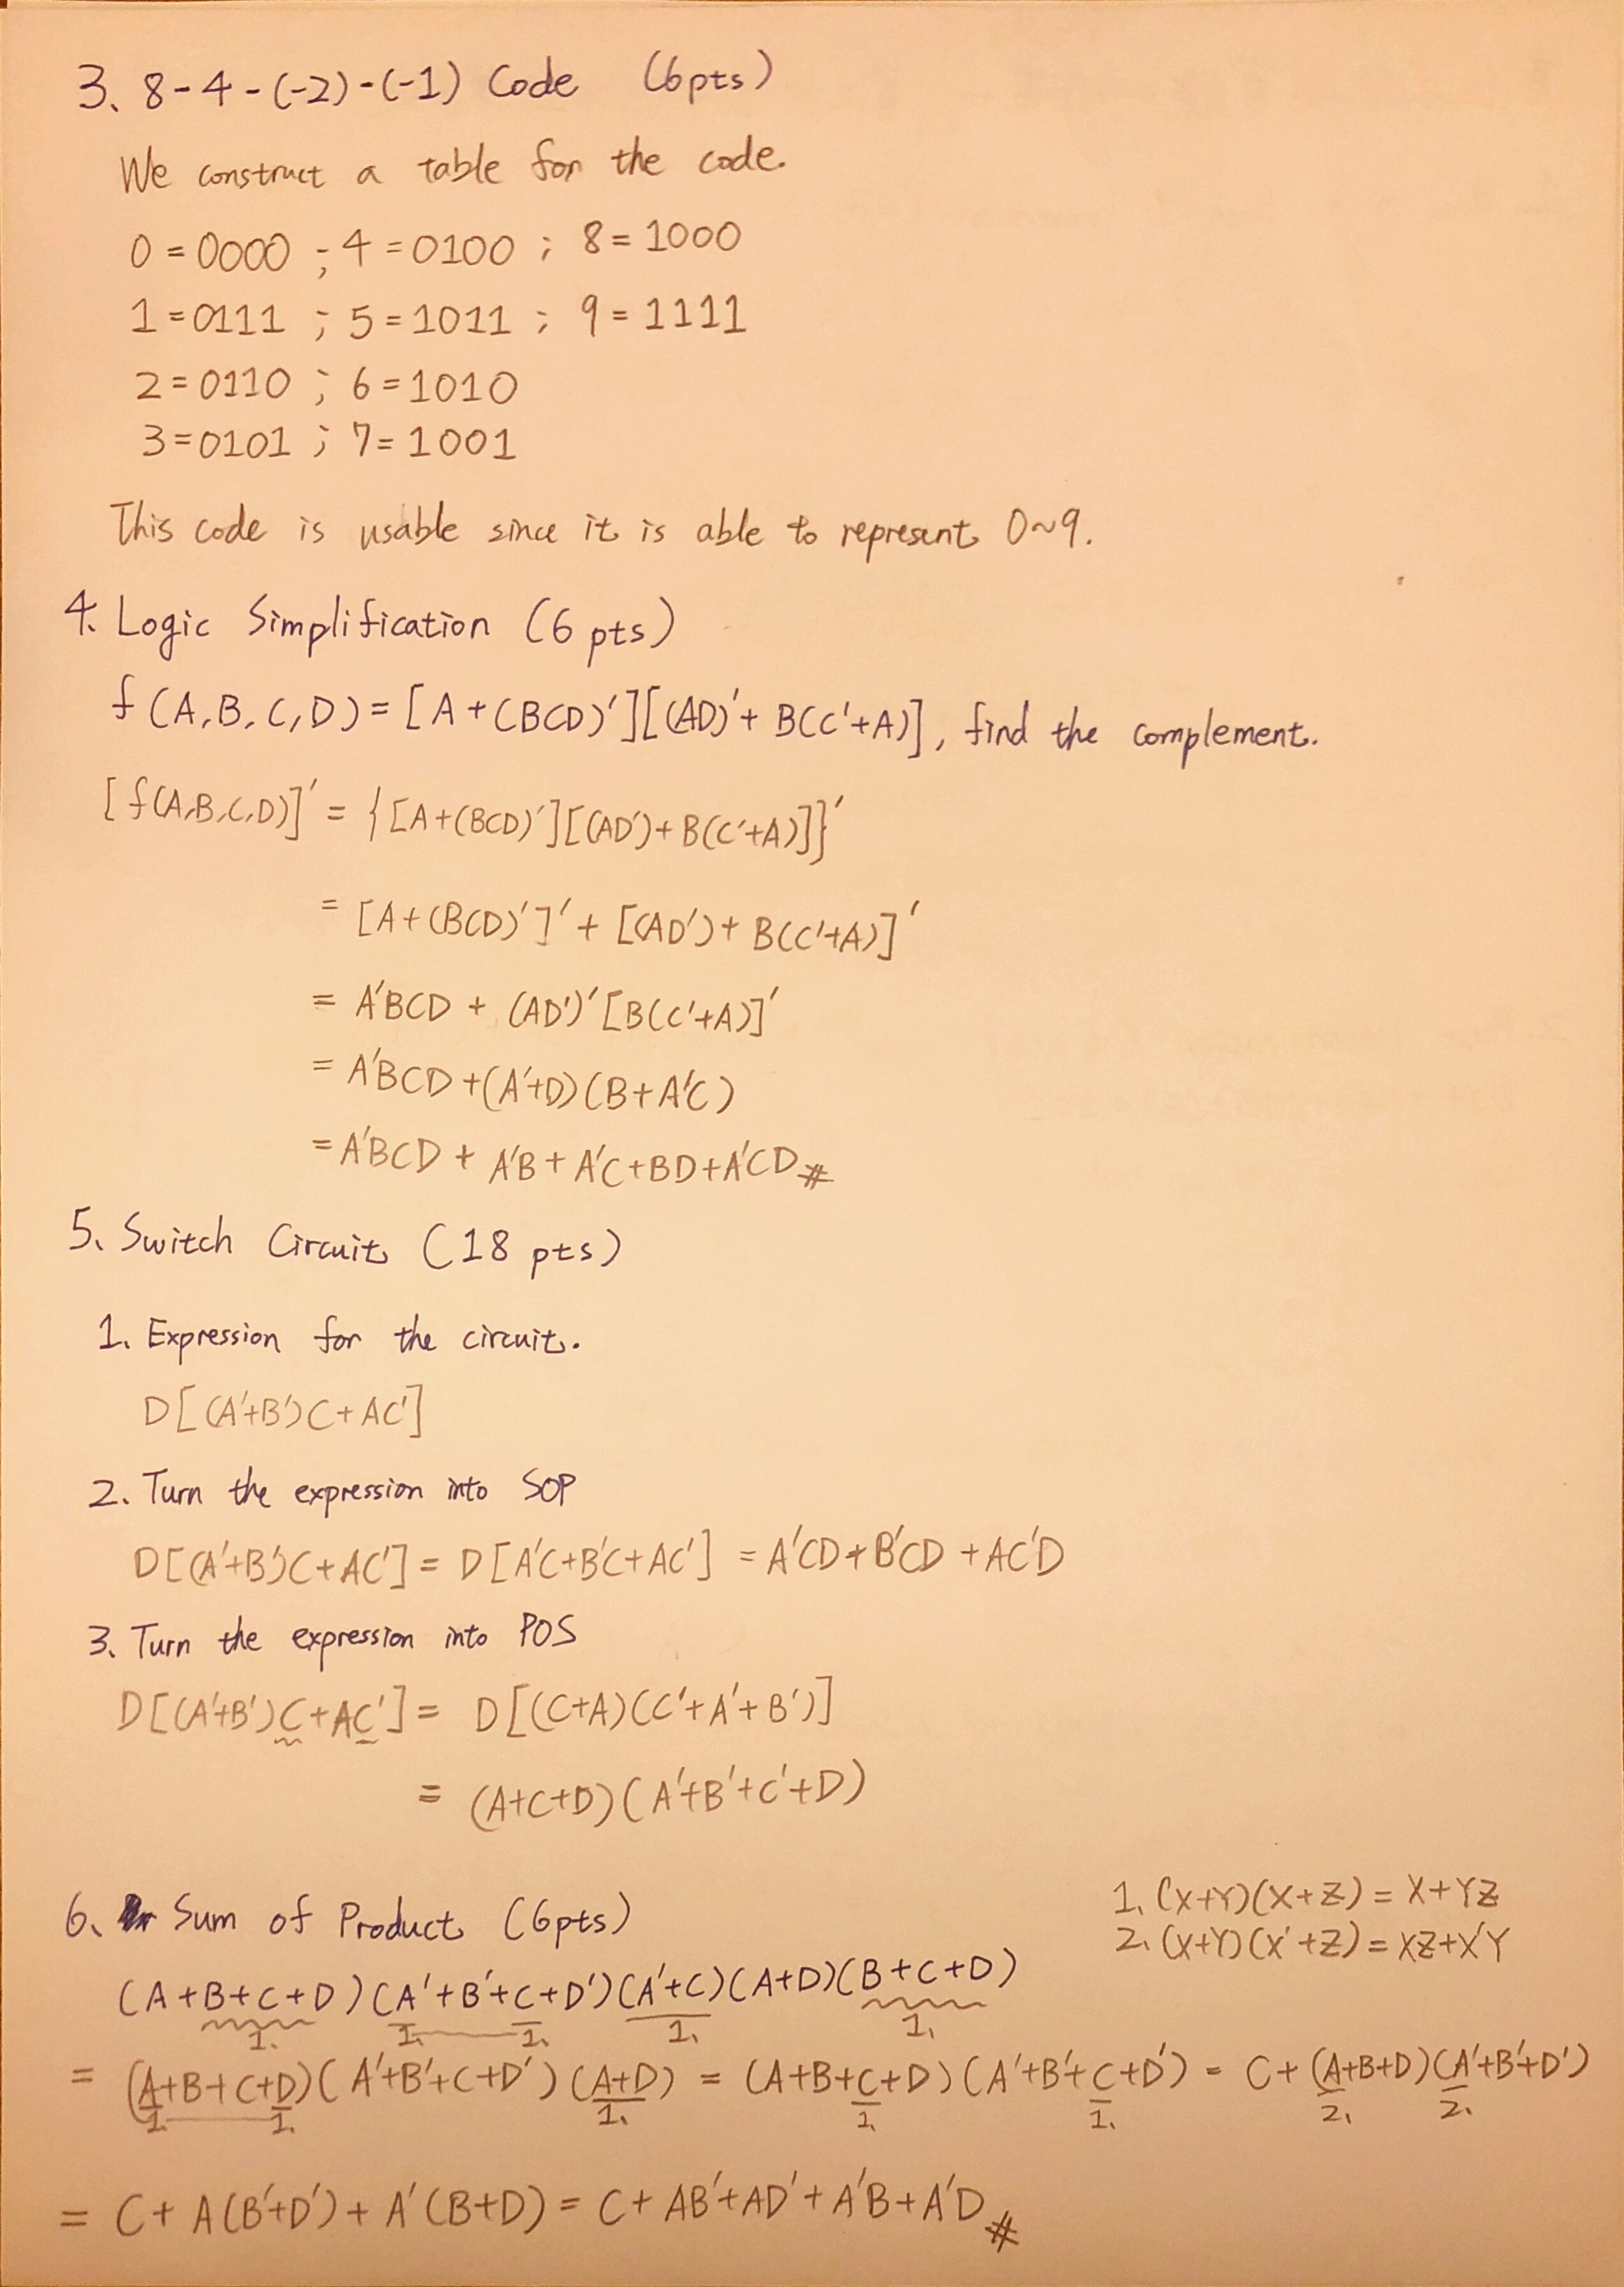 3. 8-4-(-2)-(-1) Code (6pts)
We construct a table for the code.
0=0000 ; 4=0100 ; 8=1000
1=0111 ; 5=1011 ; 9=1111
2=0110 ; 6=1010
3=0101 ; 7=1001
This code is usable since it is able to represent 0~9.
4. Logic Simplification (6 pts)
f(A,B,C,D)=[A+(BCD)'][(AD)'+B(C'+A)], find the complement.
[f(A,B,C,D)]'={[A+(BCD)'][(AD')+B(C'+A)]}'
=[A+(BCD)']'+[(AD')+B(C'+A)]'
=A'BCD+(AD')'[B(C'+A)]'
=A'BCD+(A'+D)(B+A'C)
=A'BCD+A'B+A'C+BD+A'CD#
5. Switch Circuit (18 pts)
1. Expression for the circuit.
D[(A'+B')C+AC']
2. Turn the expression into SOP
D[(A'+B')C+AC']=D[A'C+B'C+AC']=A'CD+B'CD+AC'D
3. Turn the expression into POS
D[(A'+B')C+AC']=D[(C+A)(C'+A'+B')]
=(A+C+D)(A'+B'+C'+D)
6. Sum of Product (6pts)
1. (X+Y)(X+Z)=X+YZ
2. (X+Y)(X'+Z)=XZ+X'Y
(A+B+C+D)(A'+B'+C+D')(A'+C)(A+D)(B+C+D)
1. 1. 1. 1. 1.
=(A+B+C+D)(A'+B'+C+D')(A+D)=(A+B+C+D)(A'+B'+C+D')=C+(A+B+D)(A'+B'+D')
1. 1. 1. 1. 1. 2. 2.
=C+A(B'+D')+A'(B+D)=C+AB'+AD'+A'B+A'D#